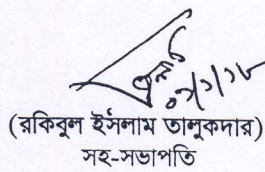 (রকিবুল ইসলাম তালুকদার)
সহ-সভাপতি